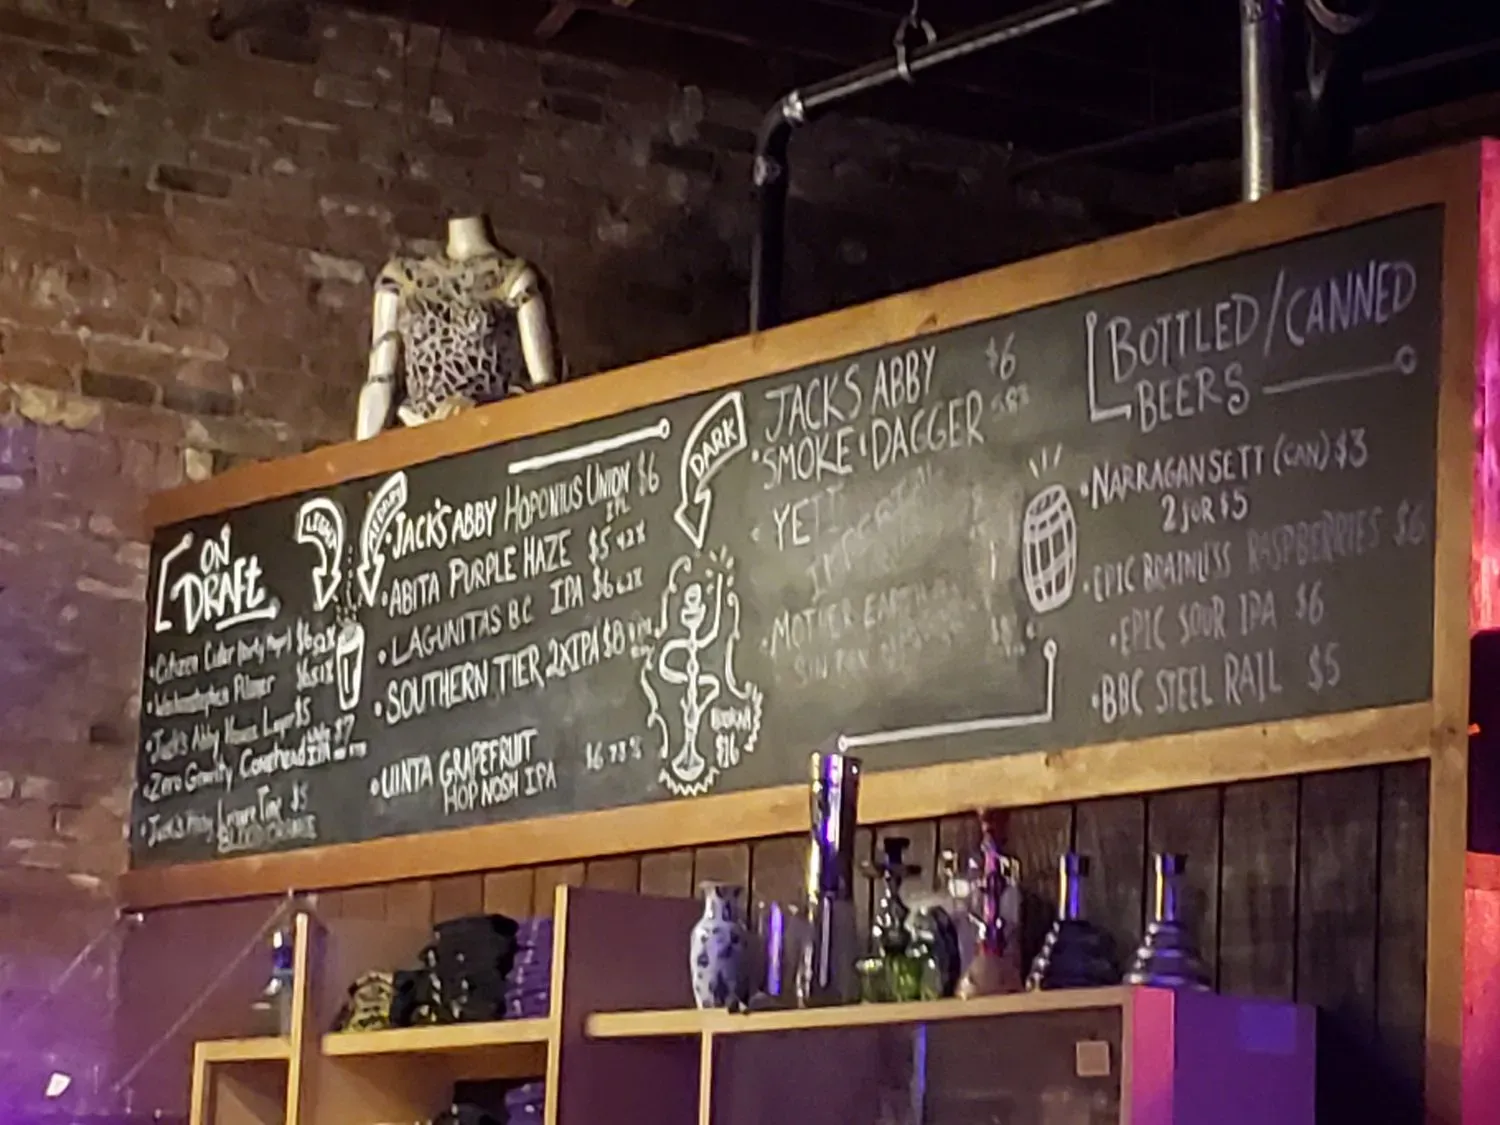 ON
DRAFT
LIGHT
MEDIUM
Citizen Cider $6
Pilsner $6
Jack's Abby House Lager $5
Zero Gravity Conehead IPA $7
Jack's Abby $5
BLOOD ORANGE
JACK'S ABBY HOPONIUS UNION $6
IPL
ABITA PURPLE HAZE $5 4.2%
LAGUNITAS B.C. IPA $6 6.2%
SOUTHERN TIER 2XIPA $8
UINTA GRAPEFRUIT $6 7.3%
HOP NOSH IPA
DARK
HOOKAH
$16
JACKS ABBY $6
SMOKE & DAGGER 5.8%
YETI
IMPERIAL
MOTHER EARTH
SIN TAX
BOTTLED/CANNED
BEERS
NARRAGANSETT (CAN) $3
2 FOR $5
EPIC BRAINLESS RASPBERRIES $6
EPIC SOUR IPA $6
BBC STEEL RAIL $5